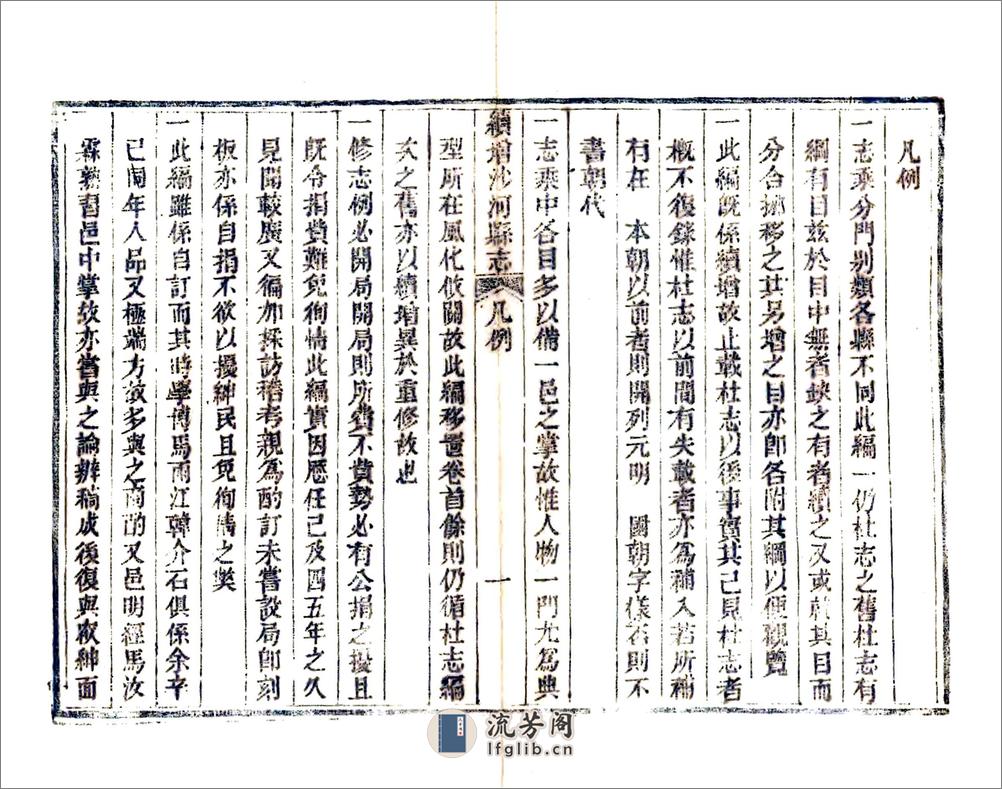 凡例
一志乘分門别類各縣不同此編一仍杜志之舊杜志有
綱有目兹於目中無者缺之有者續之又或就其目而
分合挪移之其另增之目亦卽各附其綱以便觀覽
一此編旣係續增故止載杜志以後事實其已見杜志者
槪不復錄惟杜志以前間有失載者亦爲補入若所補
有在 本朝以前者則開列元明 國朝字樣否則不
書朝代
一志乘中各目多以備一邑之掌故惟人物一門尤爲典
續增沙河縣志 凡例 一
型所在風化攸關故此編移置卷首餘則仍循杜志編
次之舊亦以續增異於重修故也
一修志例必開局開局則所費不貲勢必有公捐之擾且
旣令捐貲難免徇情此編實因歷任已及四五年之久
見聞較廣又徧加採訪稽考親爲酌訂未嘗設局卽刻
板亦係自捐不欲以擾紳民且免徇情之獘
一此編雖係自訂而其時學博馬雨江韓介石俱係余辛
己同年人品又極端方故多與之商酌又邑明經馬汝
霖熟習邑中掌故亦嘗與之論辨稿成後復與衆紳面
流芳阁
lfglib.cn